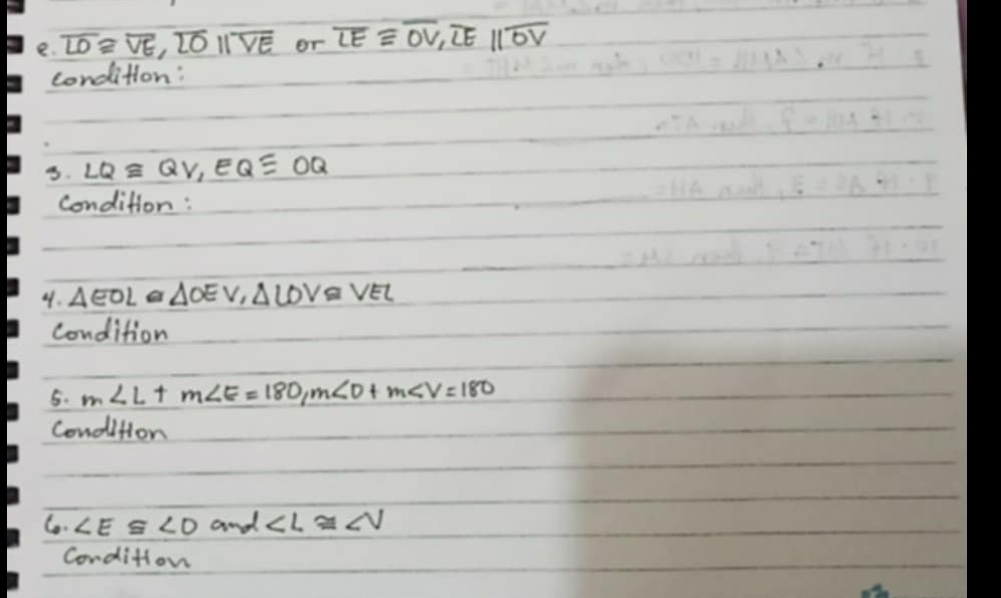 e. LO ≅ VE, LO || VE or LE ≅ OV, LE || OV
Condition:
3. LQ ≅ QV, EQ ≅ OQ
Condition:
4. ΔEOL ≅ ΔOEV, ΔLOV ≅ VEL
Condition
5. m∠L + m∠E = 180, m∠O + m∠V = 180
Condition
6. ∠E ≅ ∠O and ∠L ≅ ∠V
Condition